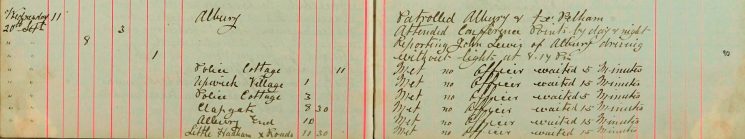 Wednesday 11 Albury Patrolled Albury & Fx. Pelham
20th Sept 3 Attended Conference Points by day & night
" " 8 Reporting John Lewis of Albury driving
" " 1 without lights at 8.17 Pm
" " Police Cottage 11 Met no Officer waited 15 Minutes
" " Upwick Village 1 Met no Officer waited 5 Minutes
" " Police Cottage 3 Met no Officer waited 5 Minutes
" " Clapgate 8 30 Met no Officer waited 15 Minutes
" " Albury End 10 Met no Officer waited 15 Minutes
" " Little Hadham x Roads 11 30 Met no Officer waited 15 Minutes